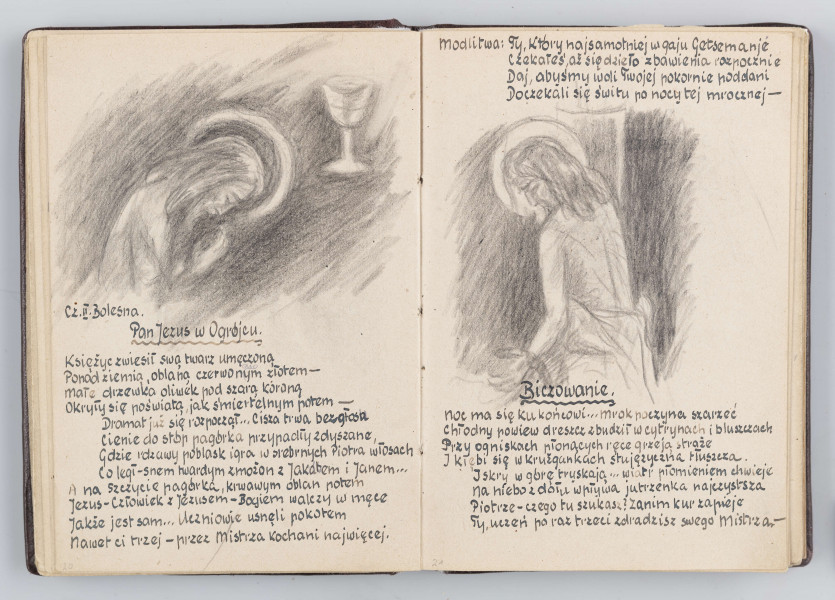 Cż. II. Bolesna.
Pan Jezus w Ogrójcu.
Księżyc zwiesił swą twarz umęczoną
Ponad ziemią, oblaną czerwonym złotem —
małe drzewka oliwek pod szarą koroną
Okryły się poświatą, jak śmiertelnym potem —
Dramat już się rozpoczął... Cisza trwa bezgłosa
Cienie do stóp pagórka przypadły zdyszane,
Gdzie rdzawy poblask igra w srebrnych Piotra włosach
Co legł-snem twardym zmożon z Jakóbem i Janem...
A na szczycie pagórka, krwawym oblan potem
Jezus-Człowiek z Jezusem-Bogiem walczy w męce
Jakże jest sam... Uczniowie usnęli pokotem
Nawet ci trzej – przez Mistrza kochani najwięcej.
Modlitwa: Ty, który najsamotniej w gaju Getsemanje
Czekałeś, aż się dzieło zbawienia rozpocznie
Daj, abyśmy woli Twojej pokornie poddani
Doczekali się świtu po nocy tej mrocznej —
Biczowanie.
Noc ma się ku końcowi... mrok poczyna szarzeć
Chłodny powiew dreszcz zbudził w cytrynach i bluszczach
Przy ogniskach płonących ręce grzeją straże
I kłębi się w krużgankach stujęzyczna tłuszcza.
Iskry w górę tryskają... wiatr płomieniem chwieje
Na niebo z dołu wpływa jutrzenka najczystsza
Piotrze – czego tu szukasz? Zanim kur zapieje
Ty, uczeń po raz trzeci zdradzisz swego Mistrza. —